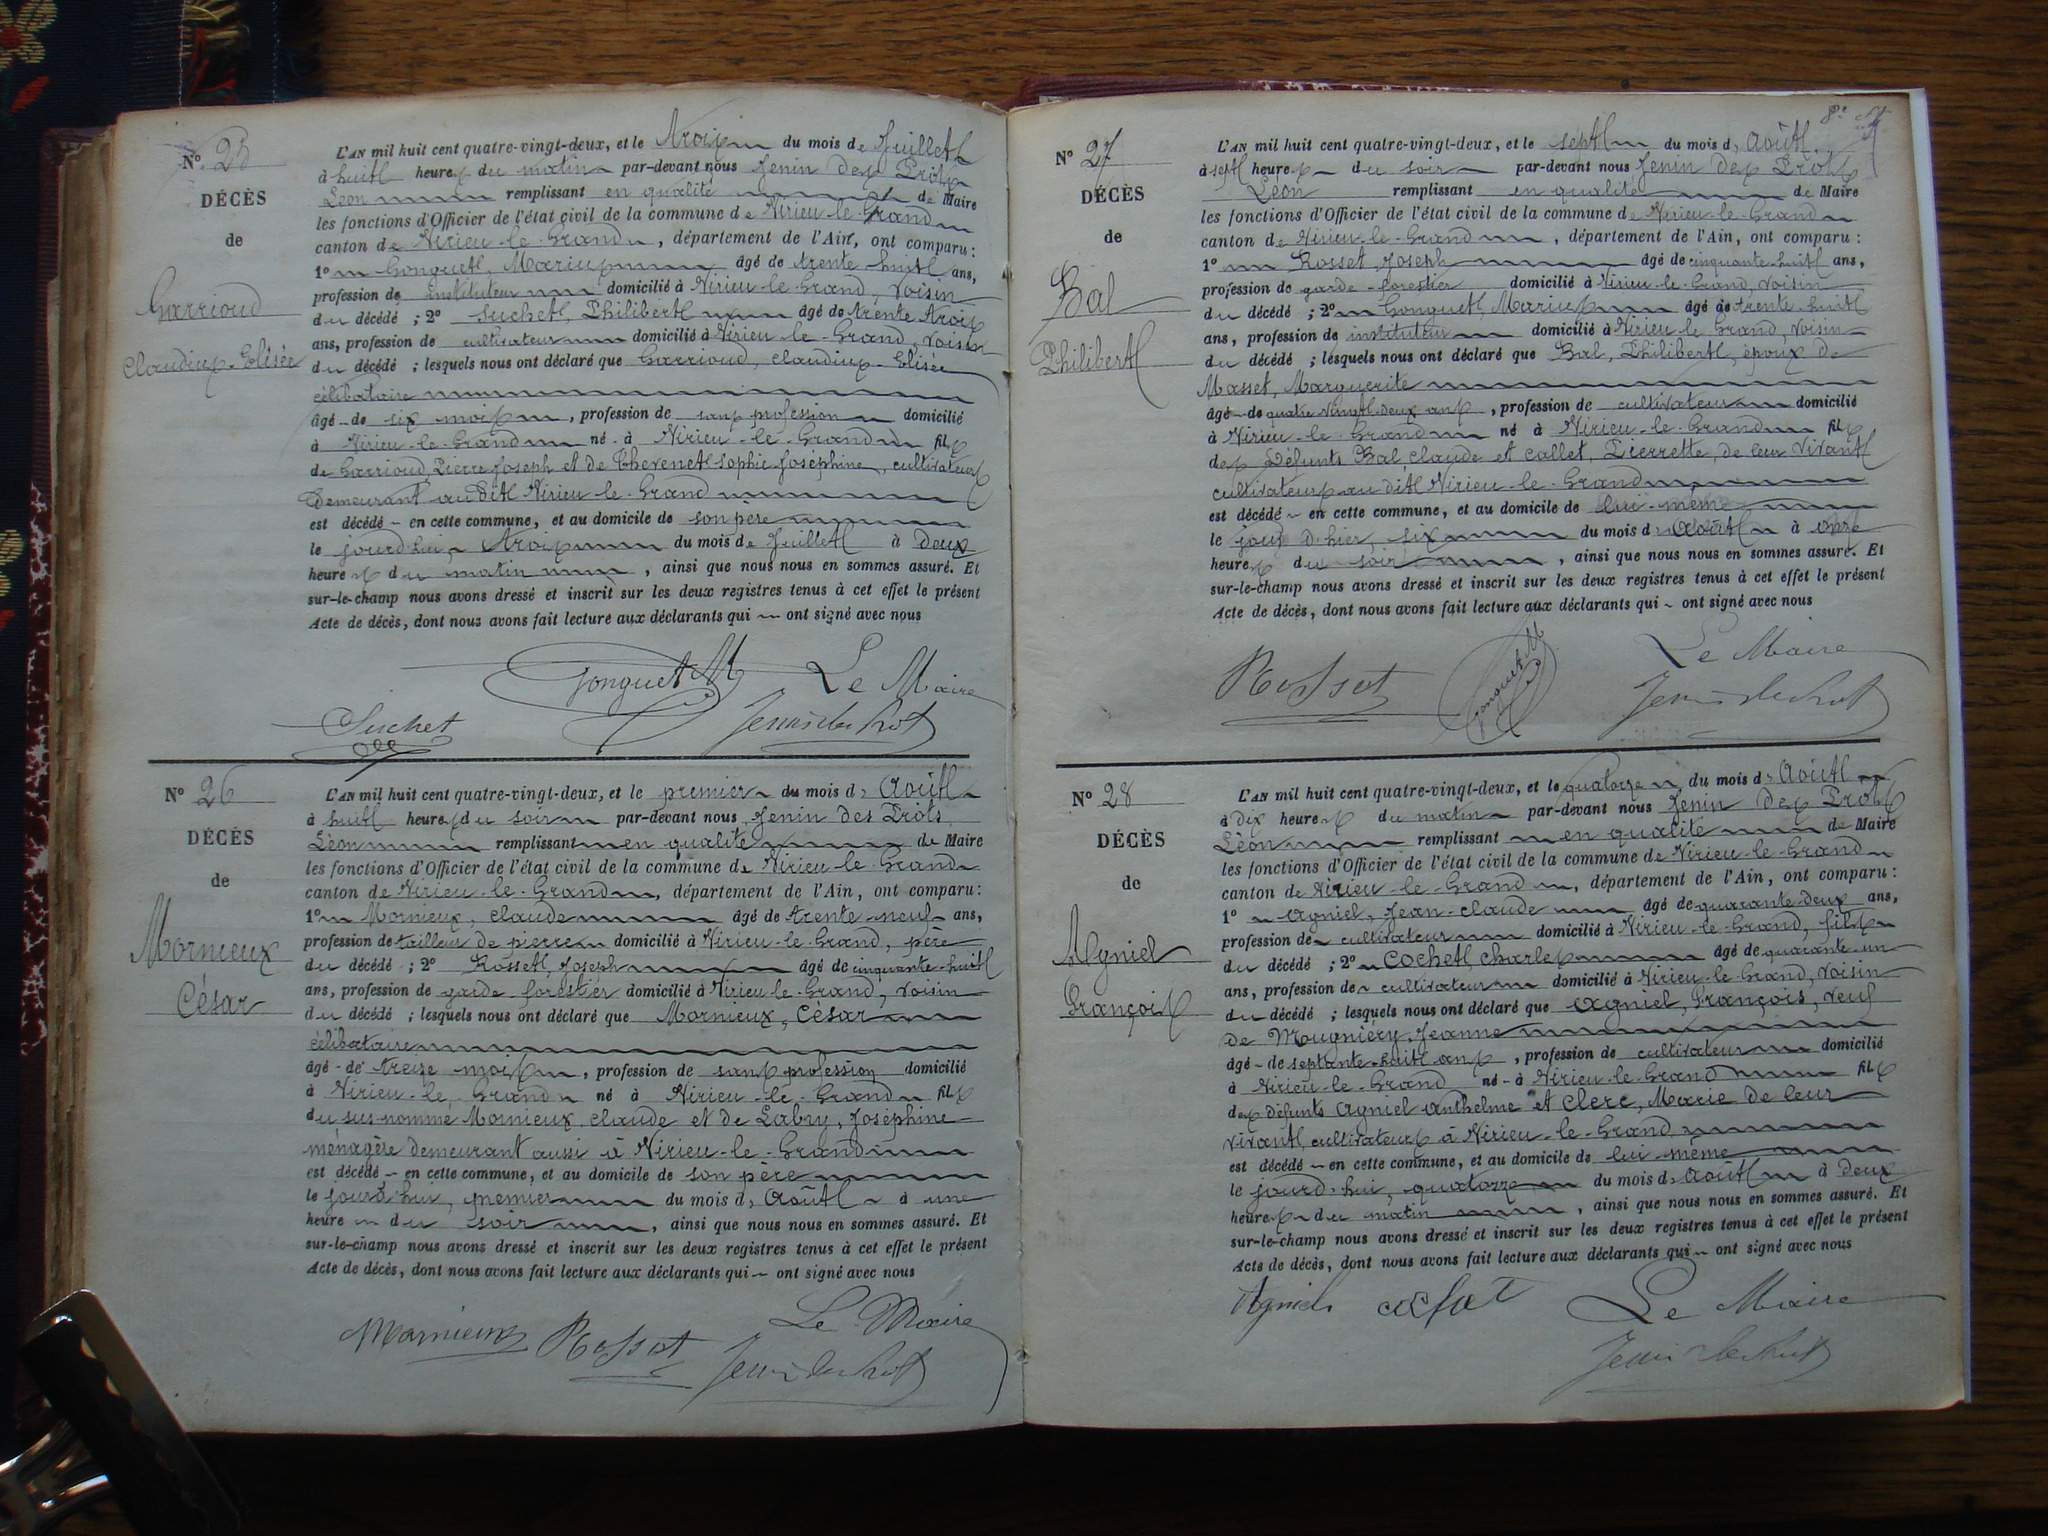 N° 25
DÉCÈS
de
Garrioud
Claudius-Elisée
L'AN mil huit cent quatre-vingt-deux, et le trois du mois de Juillet
à huit heures du matin par-devant nous Jenin des Prots
Léon remplissant en qualité de Maire
les fonctions d'Officier de l'état civil de la commune de Virieu-le-Grand
canton de Virieu-le-Grand, département de l'Ain, ont comparu :
1° Gonguet, Marius âgé de trente-huit ans,
profession de instituteur domicilié à Virieu-le-Grand, voisin
du décédé ; 2° Suchet, Philibert âgé de trente trois
ans, profession de cultivateur domicilié à Virieu-le-Grand, voisin
du décédé ; lesquels nous ont déclaré que Garrioud, Claudius-Elisée
célibataire
âgé de six mois, profession de sans profession domicilié
à Virieu-le-Grand né à Virieu-le-Grand fils
de Garrioud, Pierre Joseph et de Thevenet Sophie Joséphine, cultivateurs
demeurant au dit Virieu-le-Grand
est décédé en cette commune, et au domicile de son père
le jourd'hui trois du mois de Juillet à deux
heures du matin, ainsi que nous nous en sommes assuré. Et
sur-le-champ nous avons dressé et inscrit sur les deux registres tenus à cet effet le présent
Acte de décès, dont nous avons fait lecture aux déclarants qui ont signé avec nous
Gonguet M Le Maire
Suchet Jenin des Prots
N° 26
DÉCÈS
de
Mornieux
César
L'AN mil huit cent quatre-vingt-deux, et le premier du mois d'Août
à huit heures du soir par-devant nous Jenin des Prots,
Léon remplissant en qualité de Maire
les fonctions d'Officier de l'état civil de la commune de Virieu-le-Grand
canton de Virieu-le-Grand, département de l'Ain, ont comparu :
1° Mornieux, Claude âgé de trente-neuf ans,
profession de tailleur de pierre domicilié à Virieu-le-Grand, père
du décédé ; 2° Rosset, Joseph âgé de cinquante-huit
ans, profession de garde forestier domicilié à Virieu-le-Grand, voisin
du décédé ; lesquels nous ont déclaré que Mornieux, César
célibataire
âgé de treize mois, profession de sans profession domicilié
à Virieu-le-Grand né à Virieu-le-Grand fils
du sus-nommé Mornieux, Claude et de Labry, Joséphine
ménagère demeurant aussi à Virieu-le-Grand
est décédé en cette commune, et au domicile de son père
le jourd'hui, premier du mois d'Août à une
heure du soir, ainsi que nous nous en sommes assuré. Et
sur-le-champ nous avons dressé et inscrit sur les deux registres tenus à cet effet le présent
Acte de décès, dont nous avons fait lecture aux déclarants qui ont signé avec nous
Le Maire
Mornieux Rosset Jenin des Prots
N° 27
DÉCÈS
de
Bal
Philibert
L'AN mil huit cent quatre-vingt-deux, et le sept du mois d'Août
à sept heures du soir par-devant nous Jenin des Prots
Léon remplissant en qualité de Maire
les fonctions d'Officier de l'état civil de la commune de Virieu-le-Grand
canton de Virieu-le-Grand, département de l'Ain, ont comparu :
1° Rosset, Joseph âgé de cinquante-huit ans,
profession de garde-forestier domicilié à Virieu-le-Grand, voisin
du décédé ; 2° Gonguet, Marius âgé de trente-huit
ans, profession de instituteur domicilié à Virieu-le-Grand, voisin
du décédé ; lesquels nous ont déclaré que Bal, Philibert, époux de
Masset, Marguerite
âgé de quatre vingt-deux ans, profession de cultivateur domicilié
à Virieu-le-Grand né à Virieu-le-Grand fils
des défunts Bal, Claude et Callet, Pierrette, de leur vivant
cultivateurs au dit Virieu-le-Grand
est décédé en cette commune, et au domicile de lui-même
le jour d'hier, six du mois d'Août à onze
heures du soir, ainsi que nous nous en sommes assuré. Et
sur-le-champ nous avons dressé et inscrit sur les deux registres tenus à cet effet le présent
Acte de décès, dont nous avons fait lecture aux déclarants qui ont signé avec nous
Rosset Gonguet M Le Maire
Jenin des Prots
N° 28
DÉCÈS
de
Agniel
François
L'AN mil huit cent quatre-vingt-deux, et le quatorze du mois d'Août
à dix heures du matin par-devant nous Jenin des Prots
Léon remplissant en qualité de Maire
les fonctions d'Officier de l'état civil de la commune de Virieu-le-Grand
canton de Virieu-le-Grand, département de l'Ain, ont comparu :
1° Agniel, Jean-Claude âgé de quarante-deux ans,
profession de cultivateur domicilié à Virieu-le-Grand, fils
du décédé ; 2° Cochet, Charles âgé de quarante-un
ans, profession de cultivateur domicilié à Virieu-le-Grand, voisin
du décédé ; lesquels nous ont déclaré que Agniel, François, veuf
de Mougniéry, Jeanne
âgé de septante-huit ans, profession de cultivateur domicilié
à Virieu-le-Grand né à Virieu-le-Grand fils
des défunts Agniel Anthelme et Clerc, Marie de leur
vivant, cultivateurs à Virieu-le-Grand
est décédé en cette commune, et au domicile de lui-même
le jourd'hui, quatorze du mois d'Août à deux
heures du matin, ainsi que nous nous en sommes assuré. Et
sur-le-champ nous avons dressé et inscrit sur les deux registres tenus à cet effet le présent
Acte de décès, dont nous avons fait lecture aux déclarants qui ont signé avec nous
Agniel Le Maire
Jenin des Prots